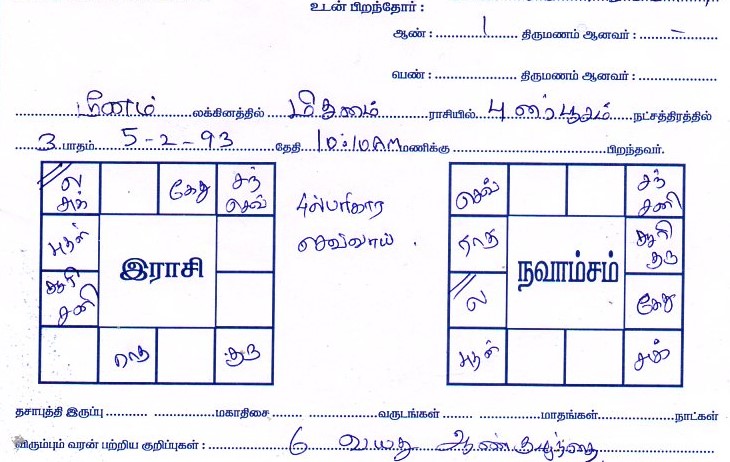 உடன் பிறந்தோர் :
ஆண் : 1 திருமணம் ஆனவர் : –
பெண் : திருமணம் ஆனவர் :
மீனம் லக்கினத்தில் மிதுனம் ராசியில் புனர்பூசம் நட்சத்திரத்தில்
3 பாதம் 5-2-93 தேதி 10:10AM மணிக்கு பிறந்தவர்.
ல சுக் கேது சந் செவ்
புதன்
சூரி சனி
ராகு குரு
இராசி
பரிகார
செவ்வாய்.
செவ் சந் சனி
ராகு சூரி குரு
ல கேது
புதன் சுக்
நவாம்சம்
தசாபுத்தி இருப்பு மகாதிசை வருடங்கள் மாதங்கள் நாட்கள்
விரும்பும் வரன் பற்றிய குறிப்புகள் : 6 வயது ஆண்குழந்தை